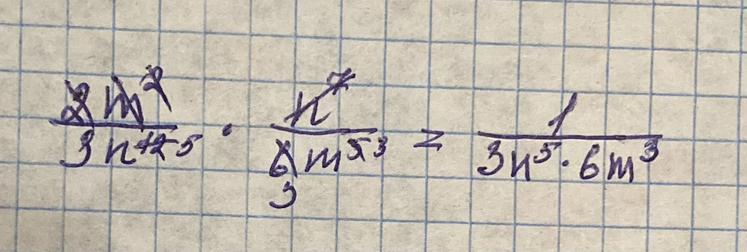 2m² / 3n¹² 5 · n⁷ / 6m⁵ 3 = 1 / 3n⁵ · 6m³
3